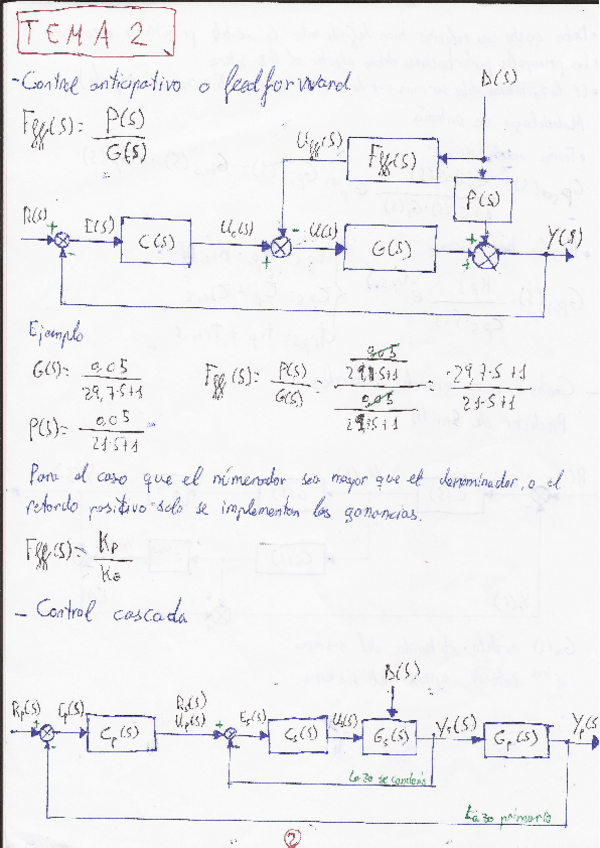 TEMA 2
- Control anticipativo o feedforward
D(s)
Fff(s) = P(s) / G(s)
Uff(s)
Fff(s)
P(s)
R(s)
+
-
E(s)
C(s)
Uc(s)
-
+
U(s)
G(s)
+
+
Y(s)
Ejemplo
G(s) = 0,05 / 29,7·s+1
Fff(s) = P(s) / G(s) = = 29,7·s+1 / 21·s+1
P(s) = 0,05 / 21·s+1
Para el caso que el númerador sea mayor que el denominador, o el
retardo positivo solo se implementan las ganancias.
Fff(s) = Kp / KG
- Control cascada
D(s)
Rp(s)
+
-
Ep(s)
Cp(s)
Rs(s)
Up(s)
+
-
Es(s)
Cs(s)
U(s)
Gs(s)
Ys(s)
Gp(s)
Yp(s
Lazo secundario
Lazo primario
2